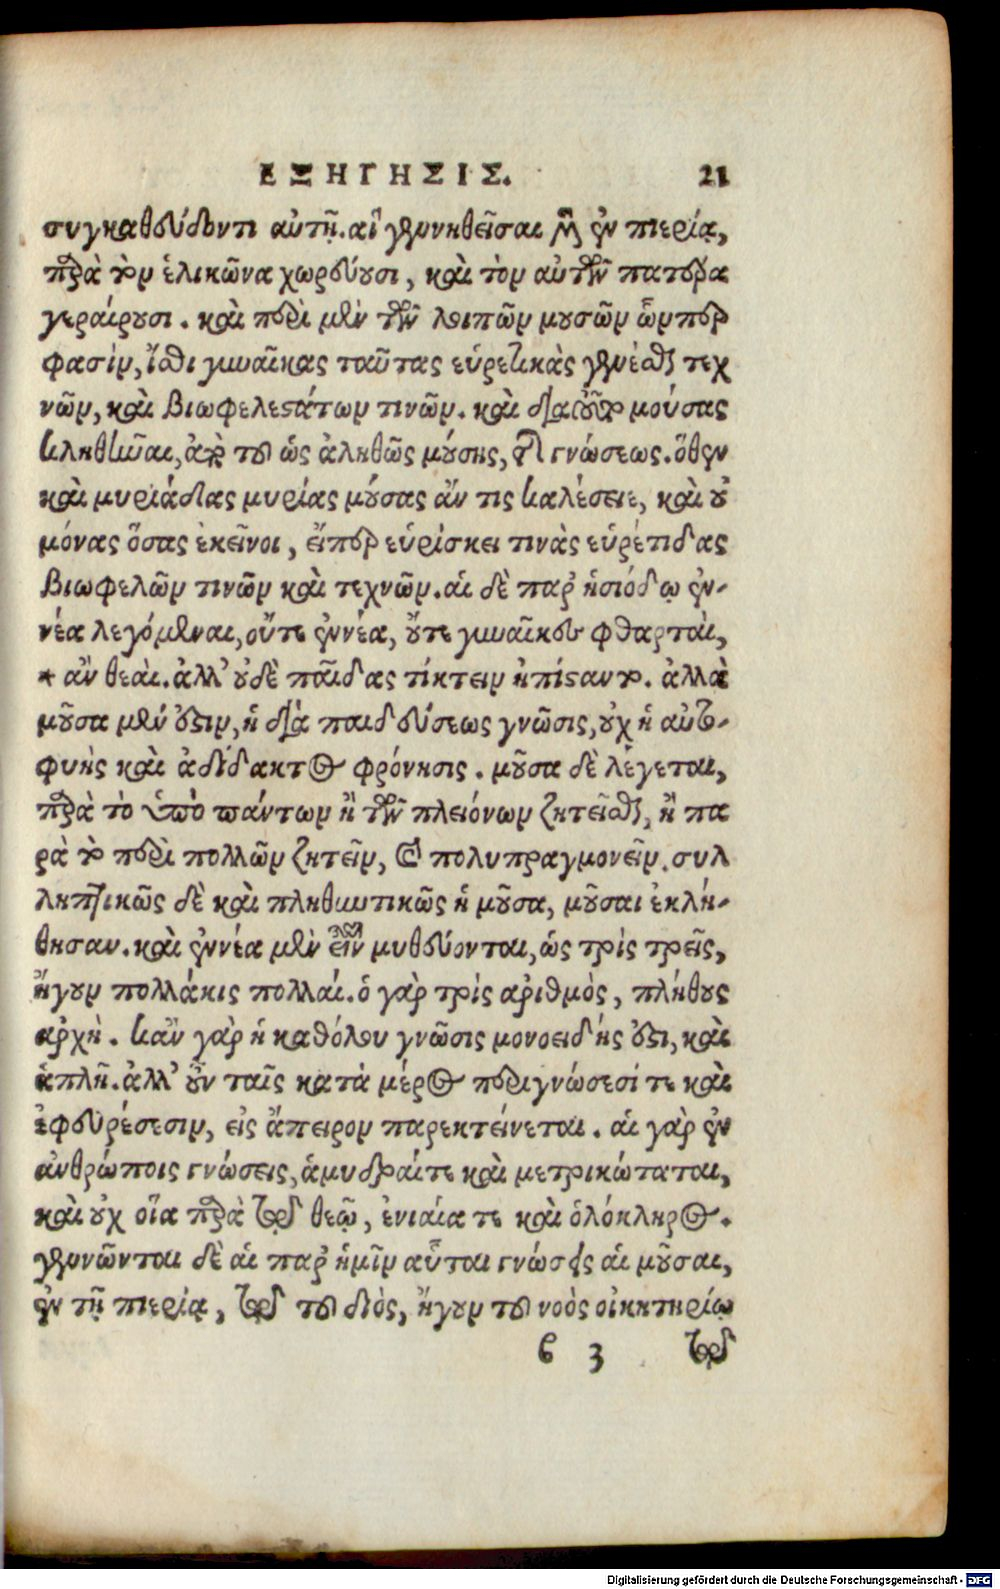 ΕΞΗΓΗΣΙΣ. 21
συγκαθεύδοντι αὐτῇ. αἳ γεννηθεῖσαι μὲν ἐν πιερίᾳ,
παρὰ τὸν ἑλικῶνα χωρεύουσι, καὶ τὸν αὐτῶν πατέρα
γεραίρουσι. καὶ περὶ μὲν τῶν λοιπῶν μουσῶν ὧνπερ
φασὶν, ἴσθι γυναῖκας ταῦτας εὑρετικὰς γενέσθαι τεχ
νῶν, καὶ βιωφελεστάτων τινῶν. καὶ διατοῦτο μούσας
κληθῆναι, ἀπὸ τοῦ ὡς ἀληθῶς μύσης, γνώσεως. ὅθεν
καὶ μυριάδας μυρίας μούσας ἄν τις καλέσειε, καὶ οὐ
μόνας ὅσας ἐκεῖνοι, εἴπερ εὑρίσκει τινὰς εὑρέτιδας
βιωφελῶν τινῶν καὶ τεχνῶν. αἱ δὲ παρ ἡσιόδῳ ἐν-
νέα λεγόμεναι, οὔτε ἐννέα, οὔτε γυναῖκες φθαρταὶ,
* ἂν θεαὶ. ἀλλ' οὐδὲ παῖδας τίκτειν ἠπίσαντο. ἀλλὰ
μοῦσα μέν ἐστιν, ἡ διὰ παιδεύσεως γνῶσις, οὐχ ἡ αὐτο-
φυὴς καὶ ἀδίδακτος φρόνησις. μοῦσα δὲ λέγεται,
παρὰ τὸ ὑπὸ πάντων ἢ τῶν πλειόνων ζητεῖσθαι, ἢ πα
ρὰ τὸ περὶ πολλῶν ζητεῖν, καὶ πολυπραγμονεῖν. συλ
ληπτικῶς δὲ καὶ πληθυντικῶς ἡ μοῦσα, μοῦσαι ἐκλή-
θησαν. καὶ ἐννέα μὲν εἶναι μυθεύονται, ὡς τρίς τρεῖς,
ἤγουν πολλάκις πολλαί. ὁ γὰρ τρίς αριθμὸς, πλήθους
αρχὴ. κἂν γὰρ ἡ καθόλου γνῶσις μονοειδής ἐστι, καὶ
ἁπλῆ. ἀλλ' οὖν ταῖς κατὰ μέρος περιγνώσεσί τε καὶ
ἐφευρέσεσιν, εἰς ἄπειρον παρεκτείνεται. αἱ γὰρ ἐν
ἀνθρώποις γνώσεις, ἀμυδραίτε καὶ μετρικώταται,
καὶ οὐχ οἵα παρὰ τῷ θεῷ, ἑνιαία τε καὶ ὁλόκληρος.
γεννῶνται δὲ αἱ παρ ἡμῖν αὗται γνώσεις αἱ μοῦσαι,
ἐν τῇ πιερίᾳ, τῷ τοῦ διὸς, ἤγουν τοῦ νοὸς οἰκητηρίῳ
c 3 τῷ
Digitalisierung gefördert durch die Deutsche Forschungsgemeinschaft - DFG